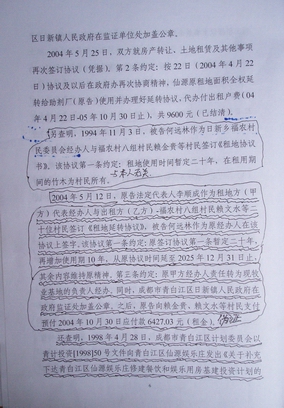 区日新镇人民政府在监证单位处加盖公章。
2004年5月25日，双方就房产转让、土地租赁及其他事项
再次签订协议（凭据）。第2条约定：按22日（2004年4月22
日）协议及以后在政府办再次协商精神，仙源原租地面积全权延
转给助剂厂（原告）使用并办理好延转协议，代办付出租户费（04
年4月22日-05年10月30日止），共9600元（已结清）。
另查明，1994年11月3日，被告何远林作为日新乡福农村
民委员会经办人与福农村八组村民赖金贵等村民签订《租地协议
书》。该协议第一条约定：租地使用时间暂定二十年，在租用期
间的竹木为村民所有。
与本人无关
2004年5月12日，原告法定代表人李顺成作为租地方（甲
方）代表经办人与出租方（乙方），福农村八组村民赖文水等三
十位村民签订《租地延转协议》，被告何远林作为原经办人在该
协议上签字。该协议第一条约定：原签订协议第一条暂定二十年，
再增加使用10年，从原协议时间延至2025年12月31日止，
其余内容维持原精神。第三条约定：原甲方经办人责任转为现牧
业基地的负责人经办。同时，成都市青白江区日新镇人民政府在
政府监证处加盖公章。之后，原告向赖金贵、赖文水等村民支付
据付2004年10月30日后应付6427.03元（租金）。
伪证
还查明，1998年4月28日，成都市青白江区计划委员会以
青计投资[1998]50号文件向青白江区仙源娱乐庄发出《关于补充
下达青白江区仙源娱乐庄修建餐饮和娱乐用房基建投资计划的